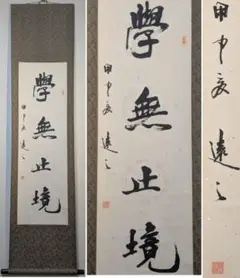 學無止境
甲申夏 遠之
學無止境
甲申夏 遠之
甲申夏 遠之